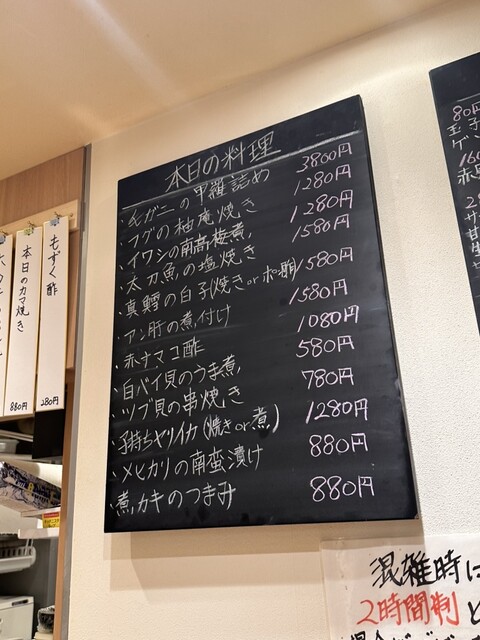 本日の料理
・毛ガニの甲羅詰め 3800円
・フグの柚庵焼き 1280円
・イワシの南高梅煮 1280円
・太刀魚の塩焼き 1580円
・真鱈の白子(焼きorポン酢) 1580円
・アン肝の煮付け 1580円
・赤ナマコ酢 1080円
・白バイ貝のうま煮 580円
・ツブ貝の串焼き 780円
・子持ちヤリイカ(焼きor煮) 1280円
・メヒカリの南蛮漬け 880円
・煮カキのつまみ 880円
もずく酢 280円
本日のカマ焼き 880円
80円
玉子
混雑時に
2時間制と